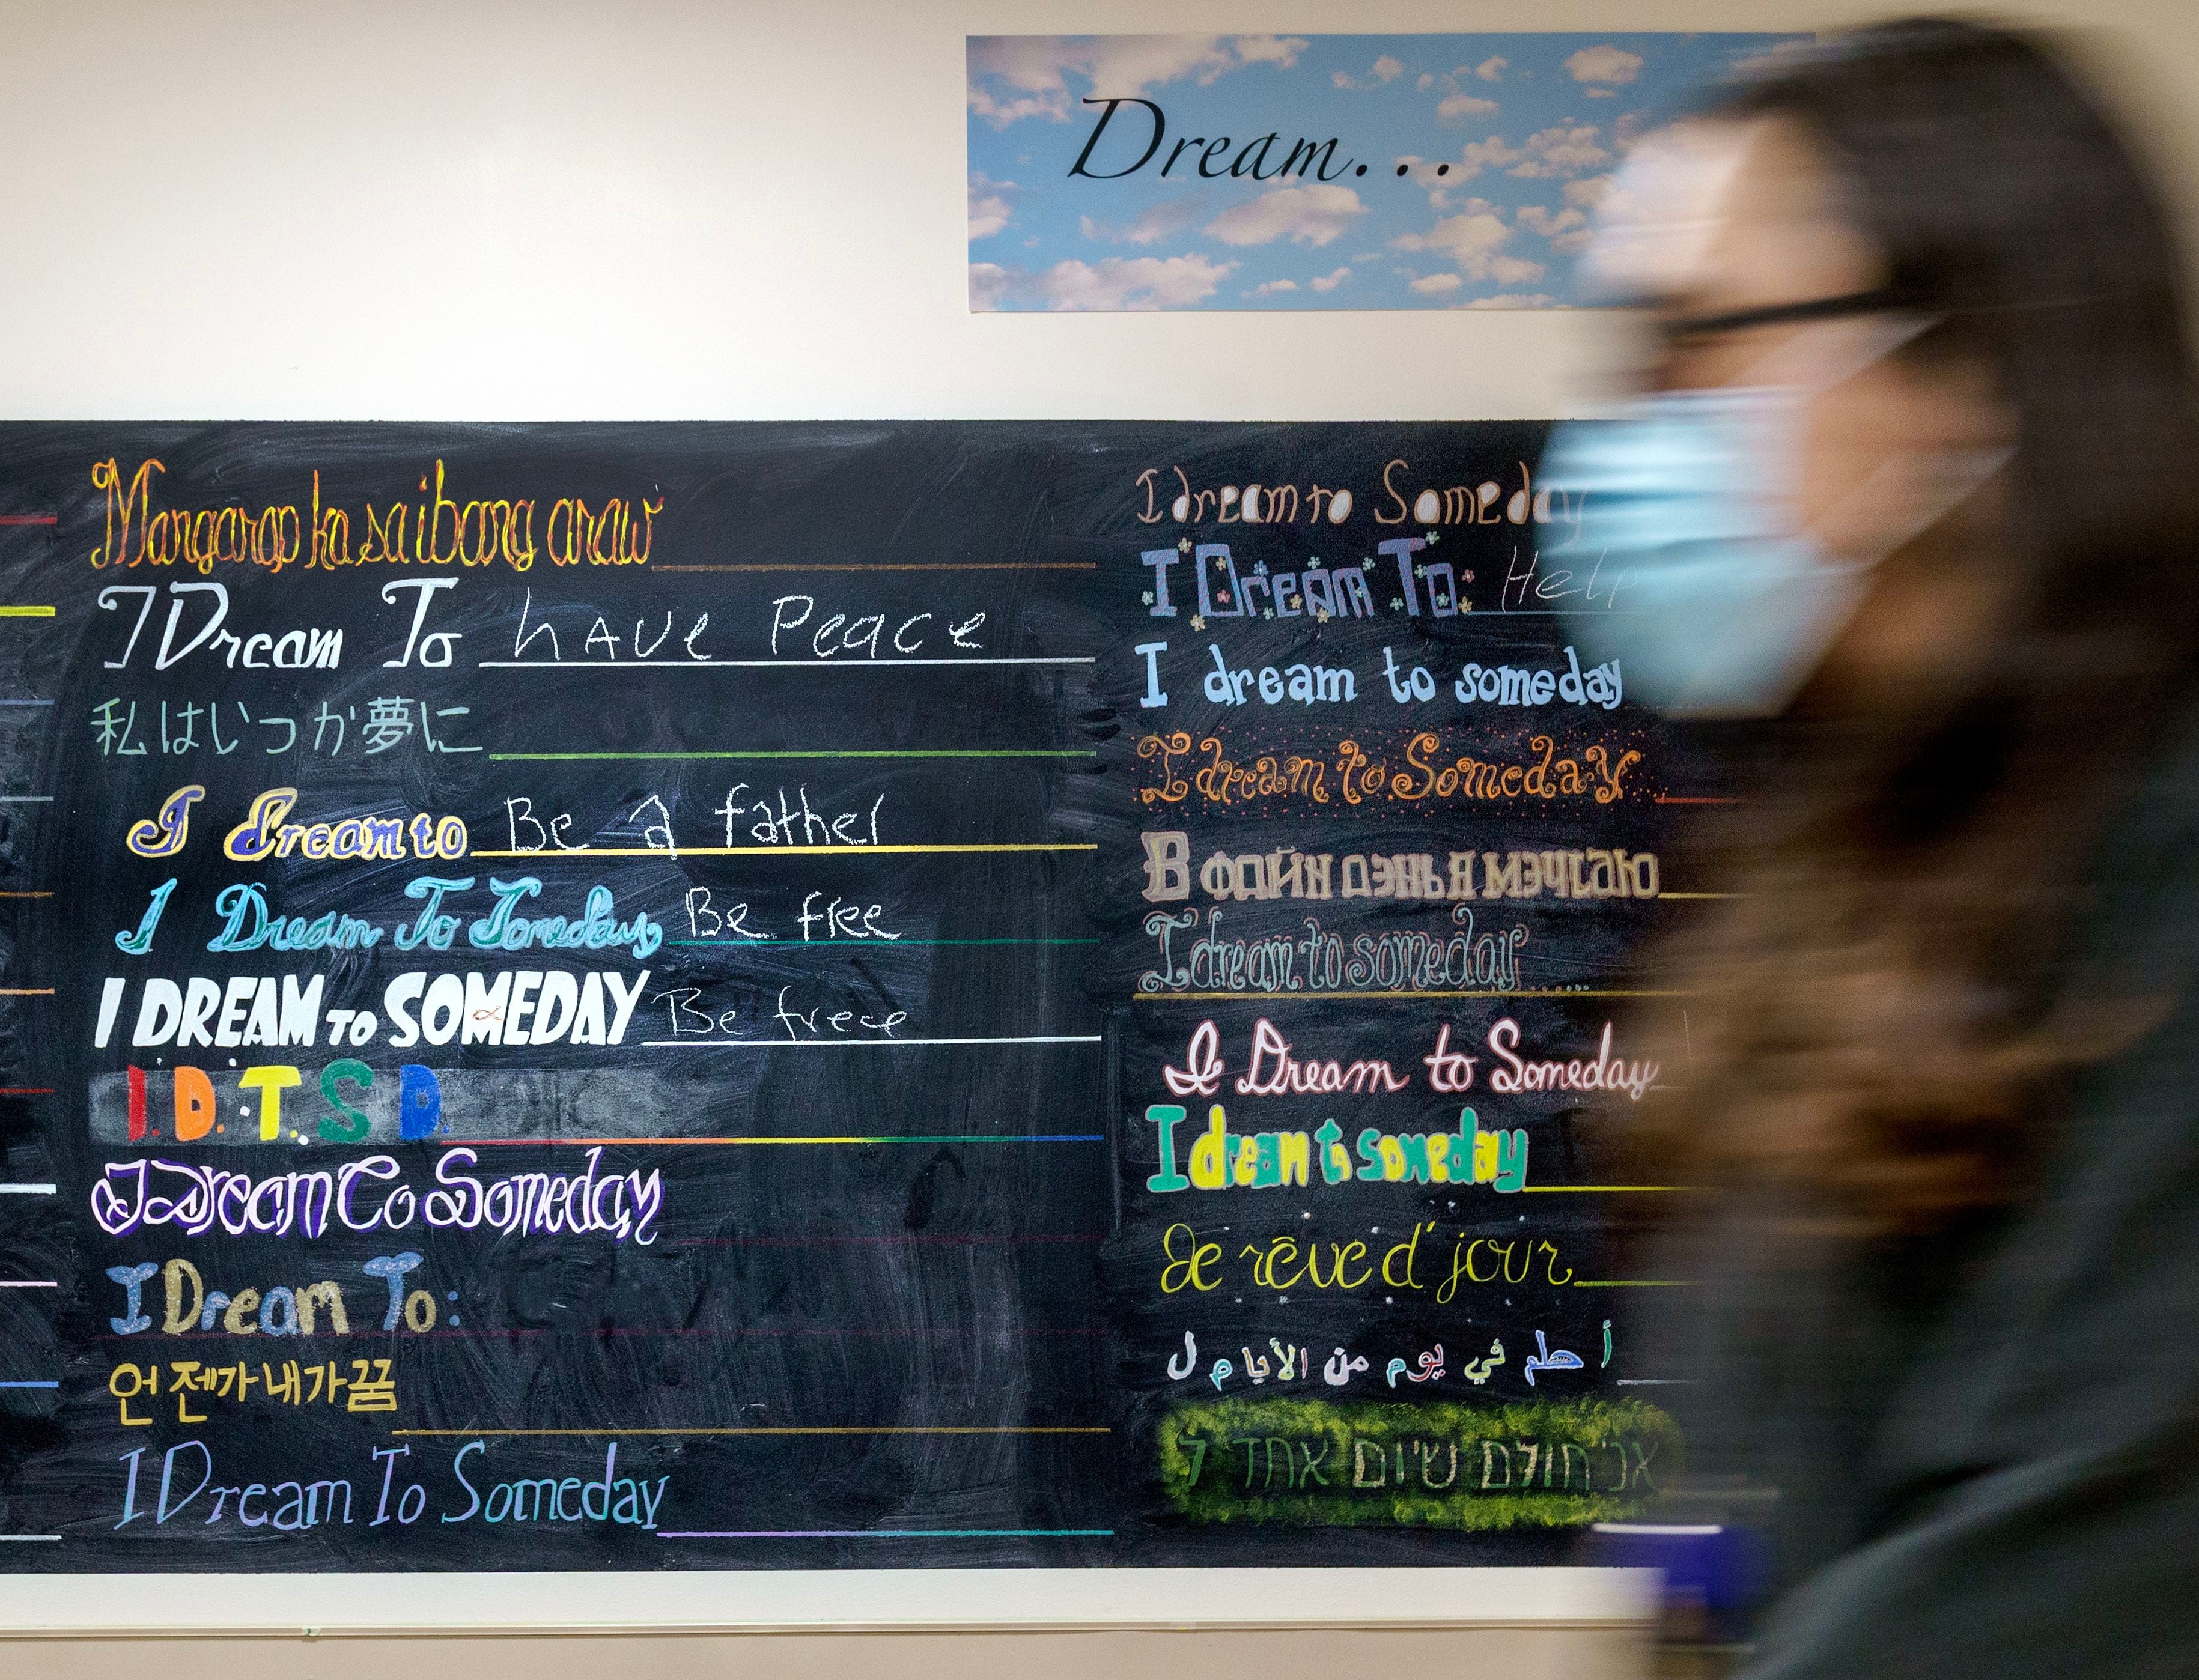 Dream...
Mangarap ka sa ibang araw
I Dream To have Peace
私はいつか夢に
I dream to Be a father
I Dream To Someday Be free
I DREAM TO SOMEDAY Be freee
I.D.T.S.D.
I Dream To Someday
I Dream To:
언젠가내가꿈
I Dream To Someday
I dream to Someday
I Dream To: Help
I dream to someday
I dream to Someday
В файн дэнь я мэчтаю
I dream to someday......
I Dream to Someday
I dream to someday
Je rêve d'jour
أ حلم في يوم من الأيام ل
אני חולם שיום אחד ל